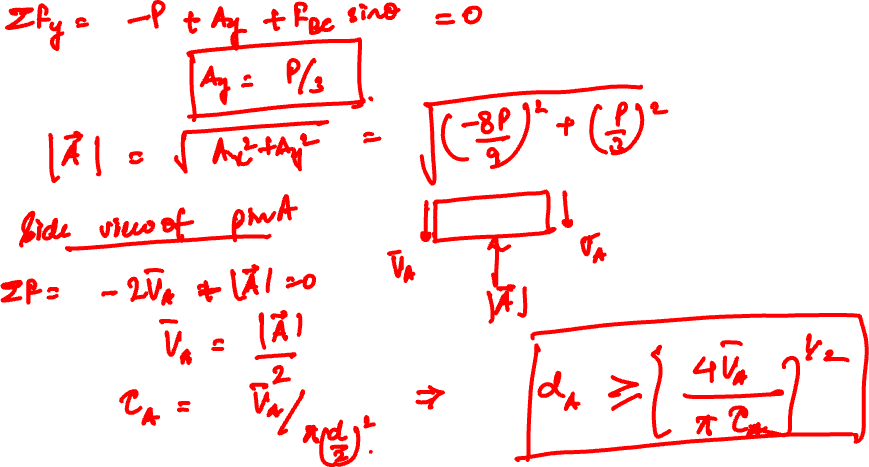 ΣFy = -P + Ay + FBC sinθ = 0
Ay = P/3
|A⃗| = √(Ax² + Ay²) = √((-8P/9)² + (P/3)²)
Side view of pin A
V̄A VA
|A⃗|
ΣF = -2V̄A + |A⃗| = 0
V̄A = |A⃗|/2
τA = V̄A / π(d/2)² ⇒ dA ≥ {4V̄A / π τA}^1/2